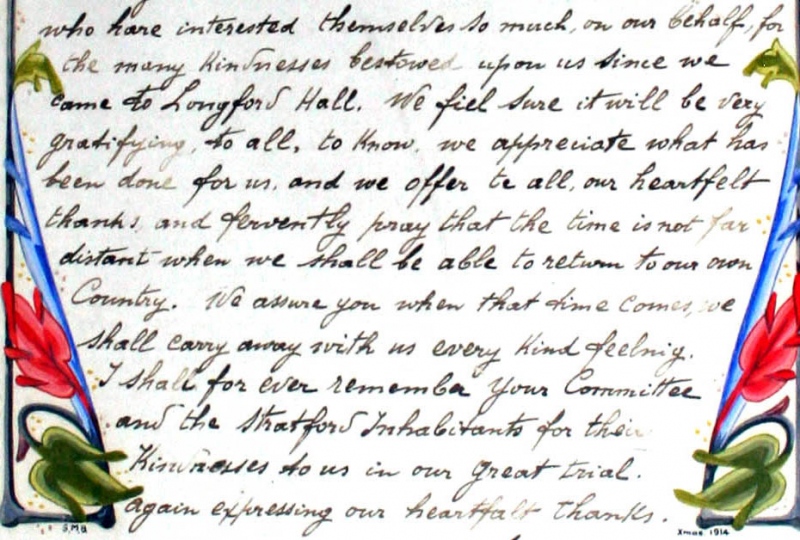 who have interested themselves so much, on our behalf, for
the many Kindnesses bestowed upon us since we
came to Longford Hall. We fiel sure it will be very
gratifying, to all, to Know, we appreciate what has
been done for us, and we offer to all, our heartfelt
thanks, and fervently pray that the time is not far
distant when we shall be able to return to our own
Country. We assure you when that time comes, we
shall carry away with us every Kind feelnig.
I shall for ever remember Your Committee
and the Stratford Inhabitants for their
Kindnesses to us in our great trial.
Again expressing our heartfalt Thanks.
S.M.B Xmas 1914